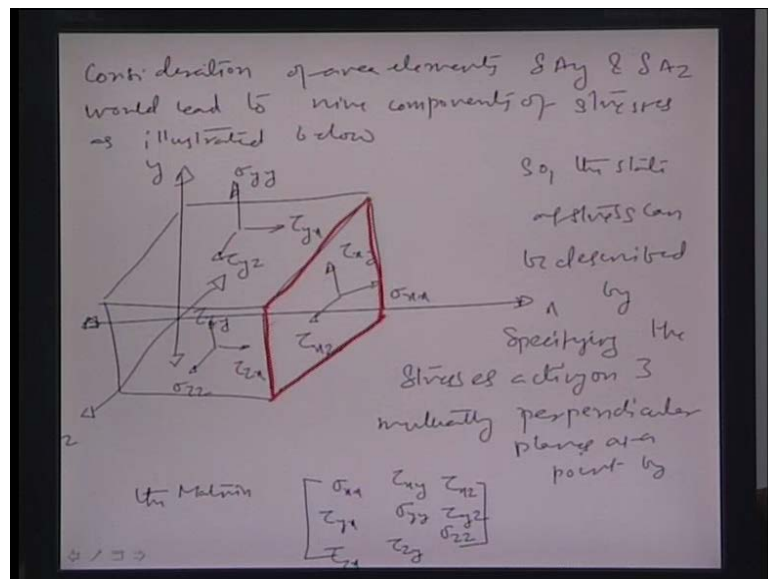 Consideration of area elements δAy & δAz
would lead to nine components of stresses
as illustrated below
y
σyy
τyx
τyz
τxy
σxx
τxz
τzy
τzx
σzz
x
z
So, the state
of stress can
be described
by
Specifying the
Stresses acting on 3
mutually perpendicular
planes at a
point by
the Matrix
σxx τxy τxz
τyx σyy τyz
τzx τzy σzz